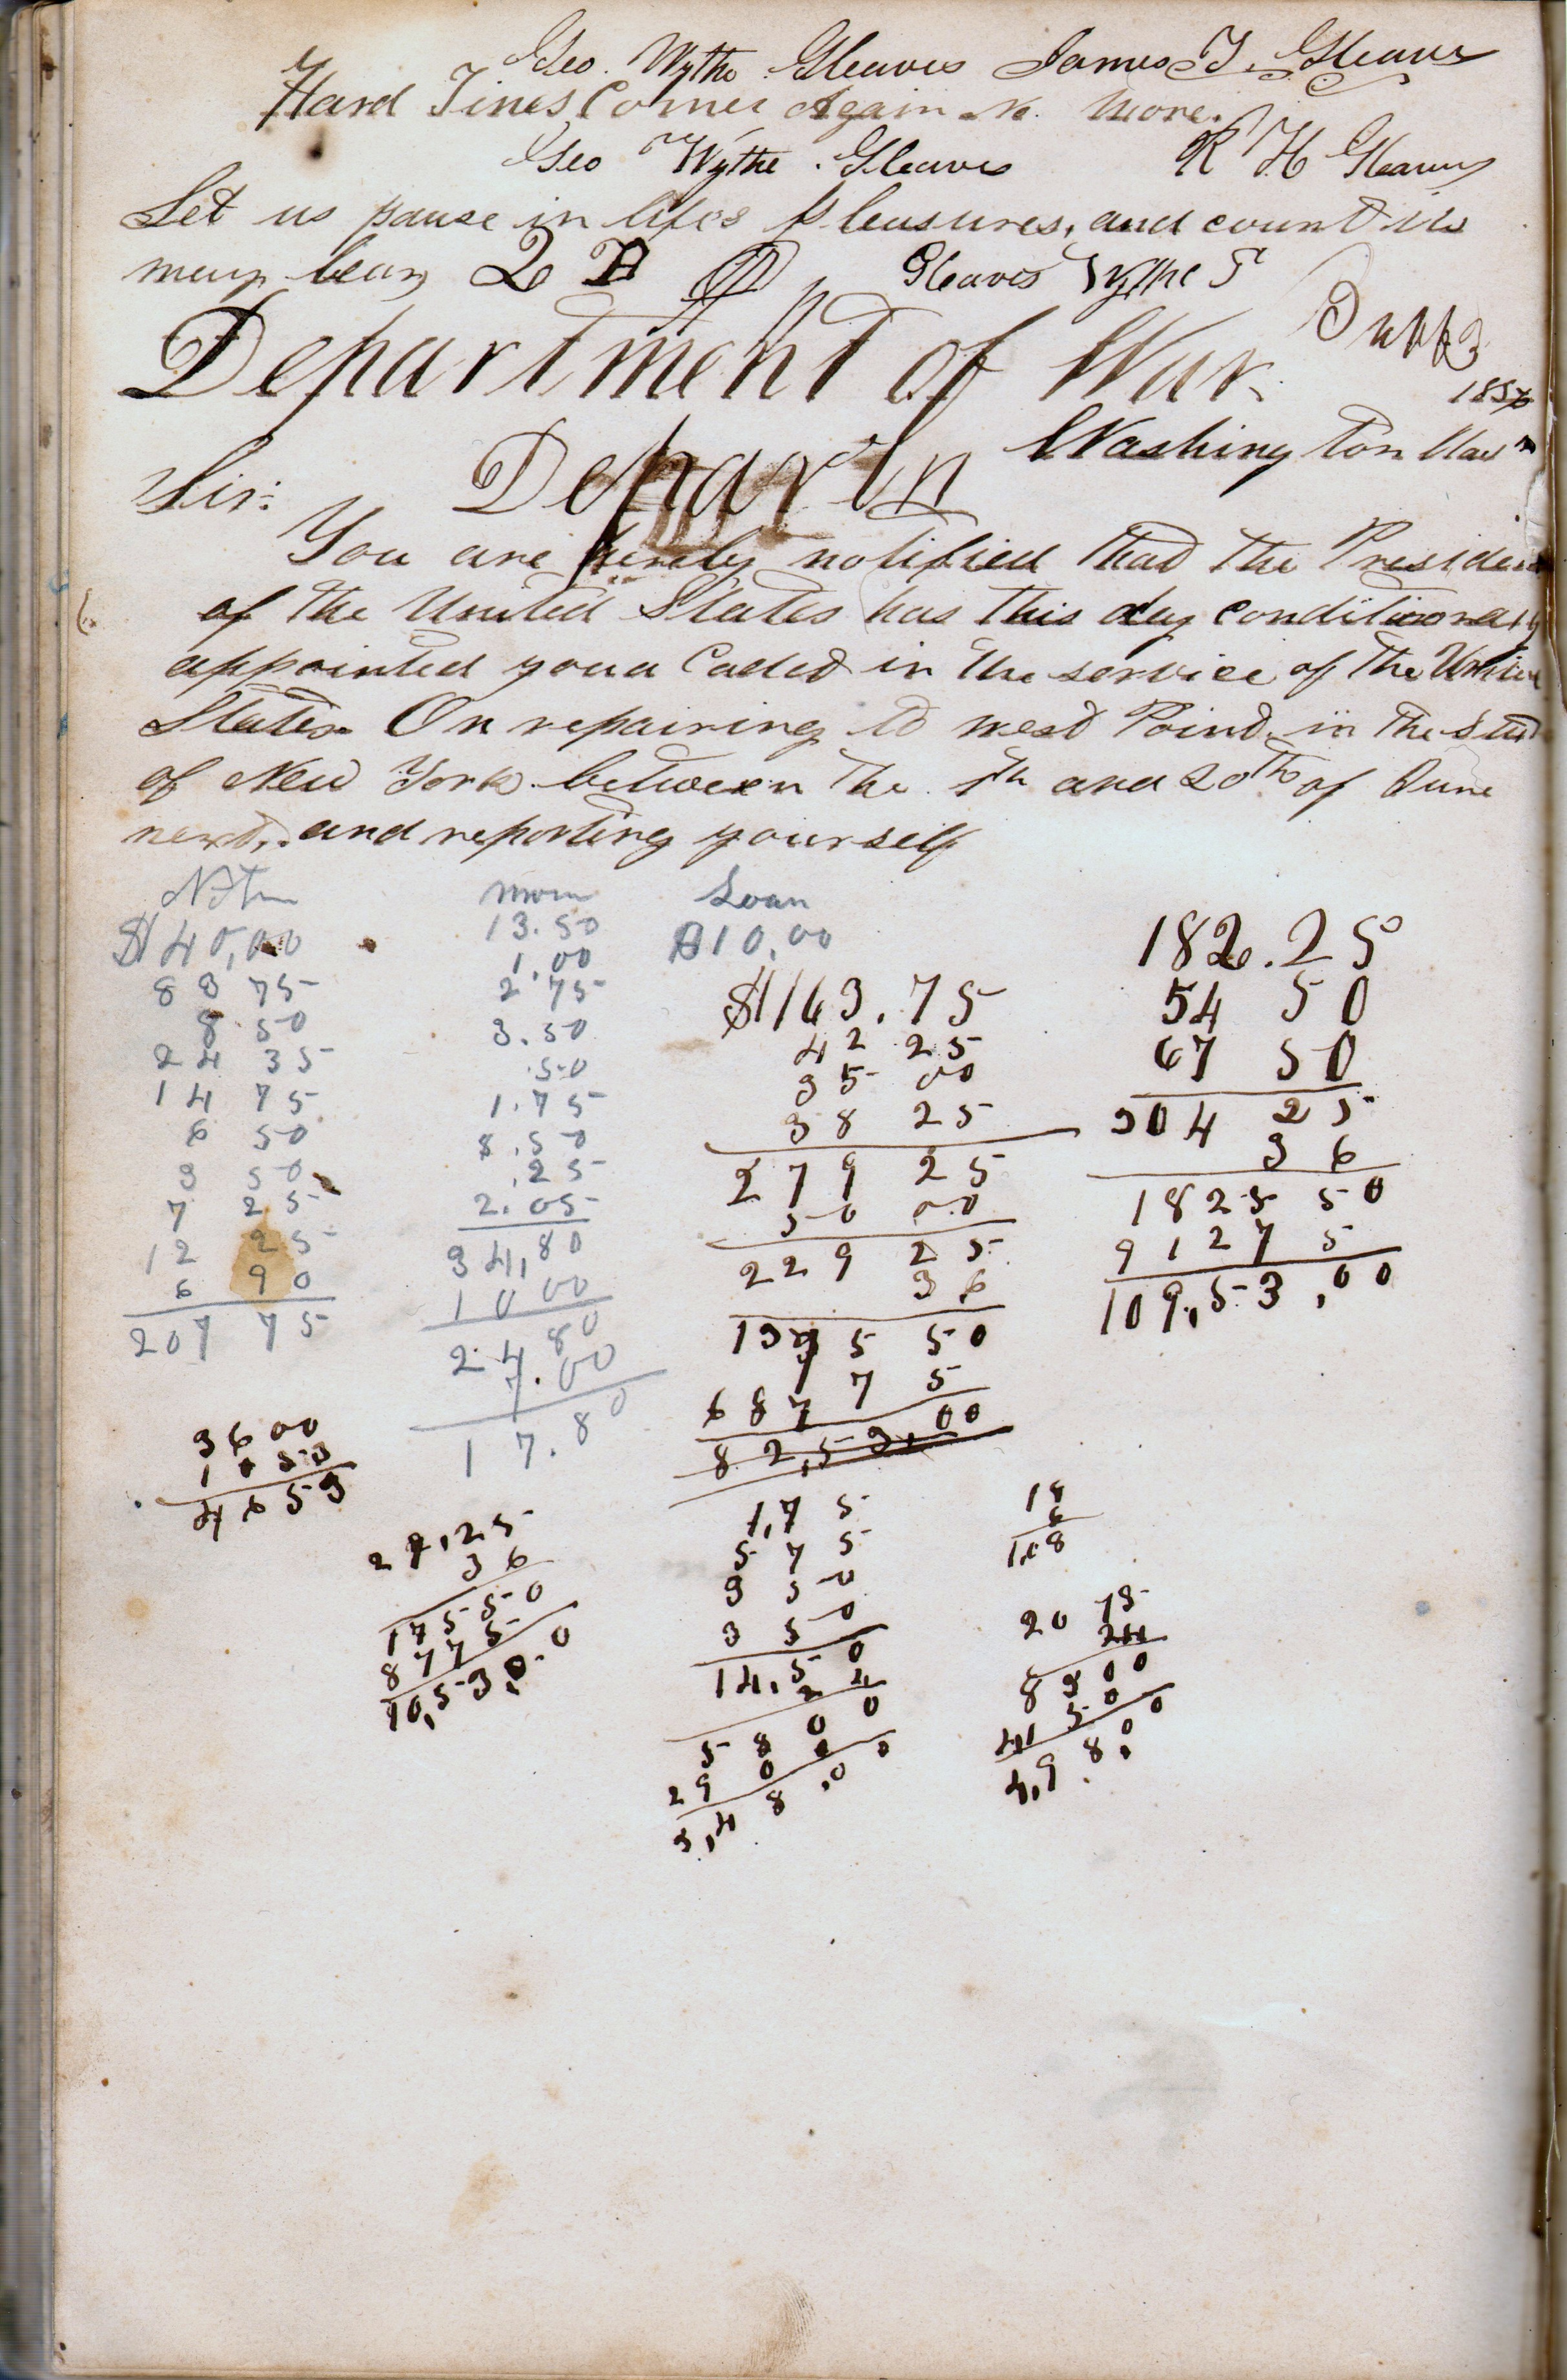 Geo. Wythe Gleaves James T. Gleaves
Hard Times Comer Again No. more.
Geo Wythe. Gleaves R H Gleaves
Let us pause in lifes pleasures, and count its
many
Gleaves Wythe T
Department of War.
185
Washington
Sir: Departn
You are hereby notified that the Presiden
of the United States has this day conditionally
appointed you a Cadet in the service of the United
States. On repairing to west Point, in the stat
of New York. between the 1th and 20th of June
next, and reporting yourself
$140,00
88 75
8.50
24 35
14 75
6 50
3 50
7 25
12 25
6 90
207 75
13.50
1.00
2 75
3.50
.50
1.75
8.50
.25
2.05
34,80
10 00
24 80
7.00
17.80
Loan
$10,00
$163.75
42 25
35 00
38 25
279 25
50 00
229 25
36
1375 50
6877 5
82,53,00
182.25
54 50
67 50
304 25
36
1825 50
9127 5
109,53,00
3600
1053
4653
29,25
36
17550
8775
10,53,0.0
1,75
5 75
3 50
3 50
14,50
24
5800
2900
3,48.00
18
6
108
20 75
24
8300
4150
4,98.00